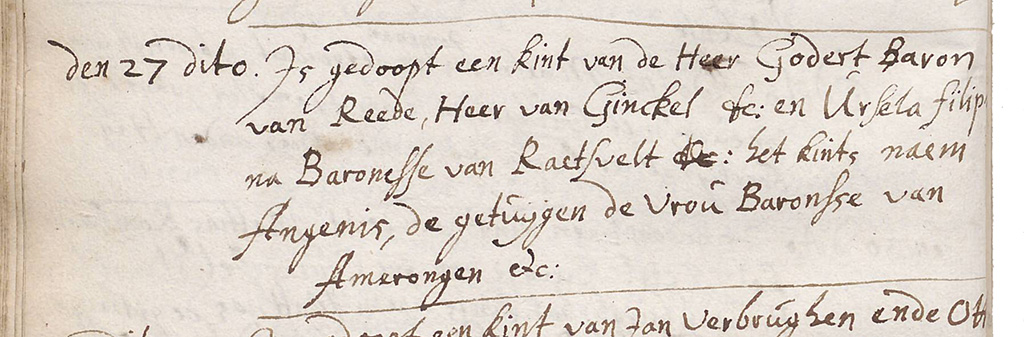 den 27 dito. Is gedoopt een kint van de Heer Godert Baron
van Reede, Heer van Ginckel &c: en Ursela filip
na Baronesse van Raetsvelt &c: het kints naem
Angenis, de getuygen de Vrou Baronsse van
Amerongen etc:
een kint van Jan Verbrughen ende Ott